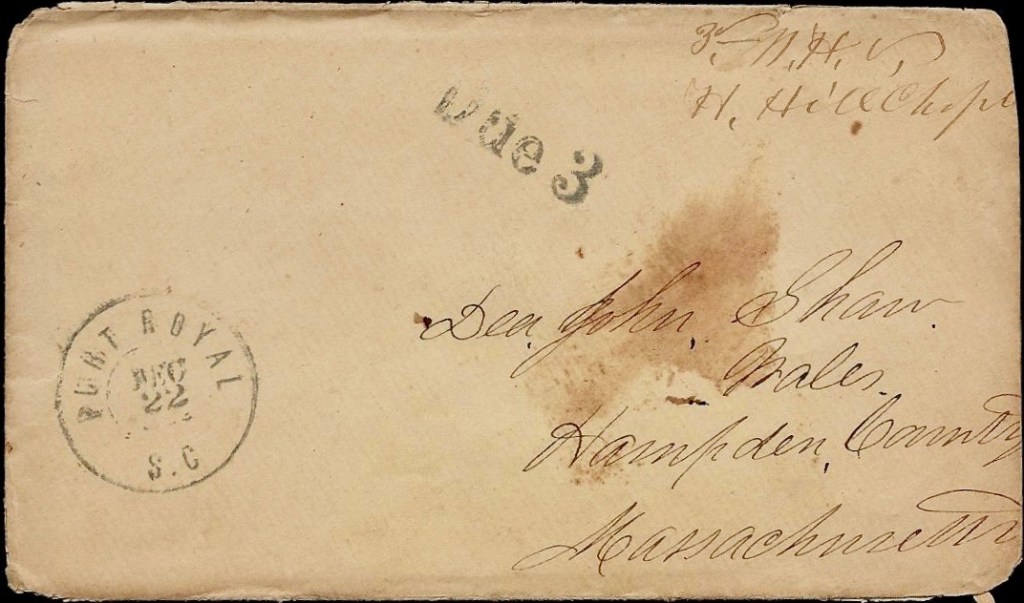 3. N. H. V,
H. Hill Chapl
Due 3
Dea. John, Shaw.
Wales.
Hampden, County
Massachusetts
PORT ROYAL
DEC
22
S.C